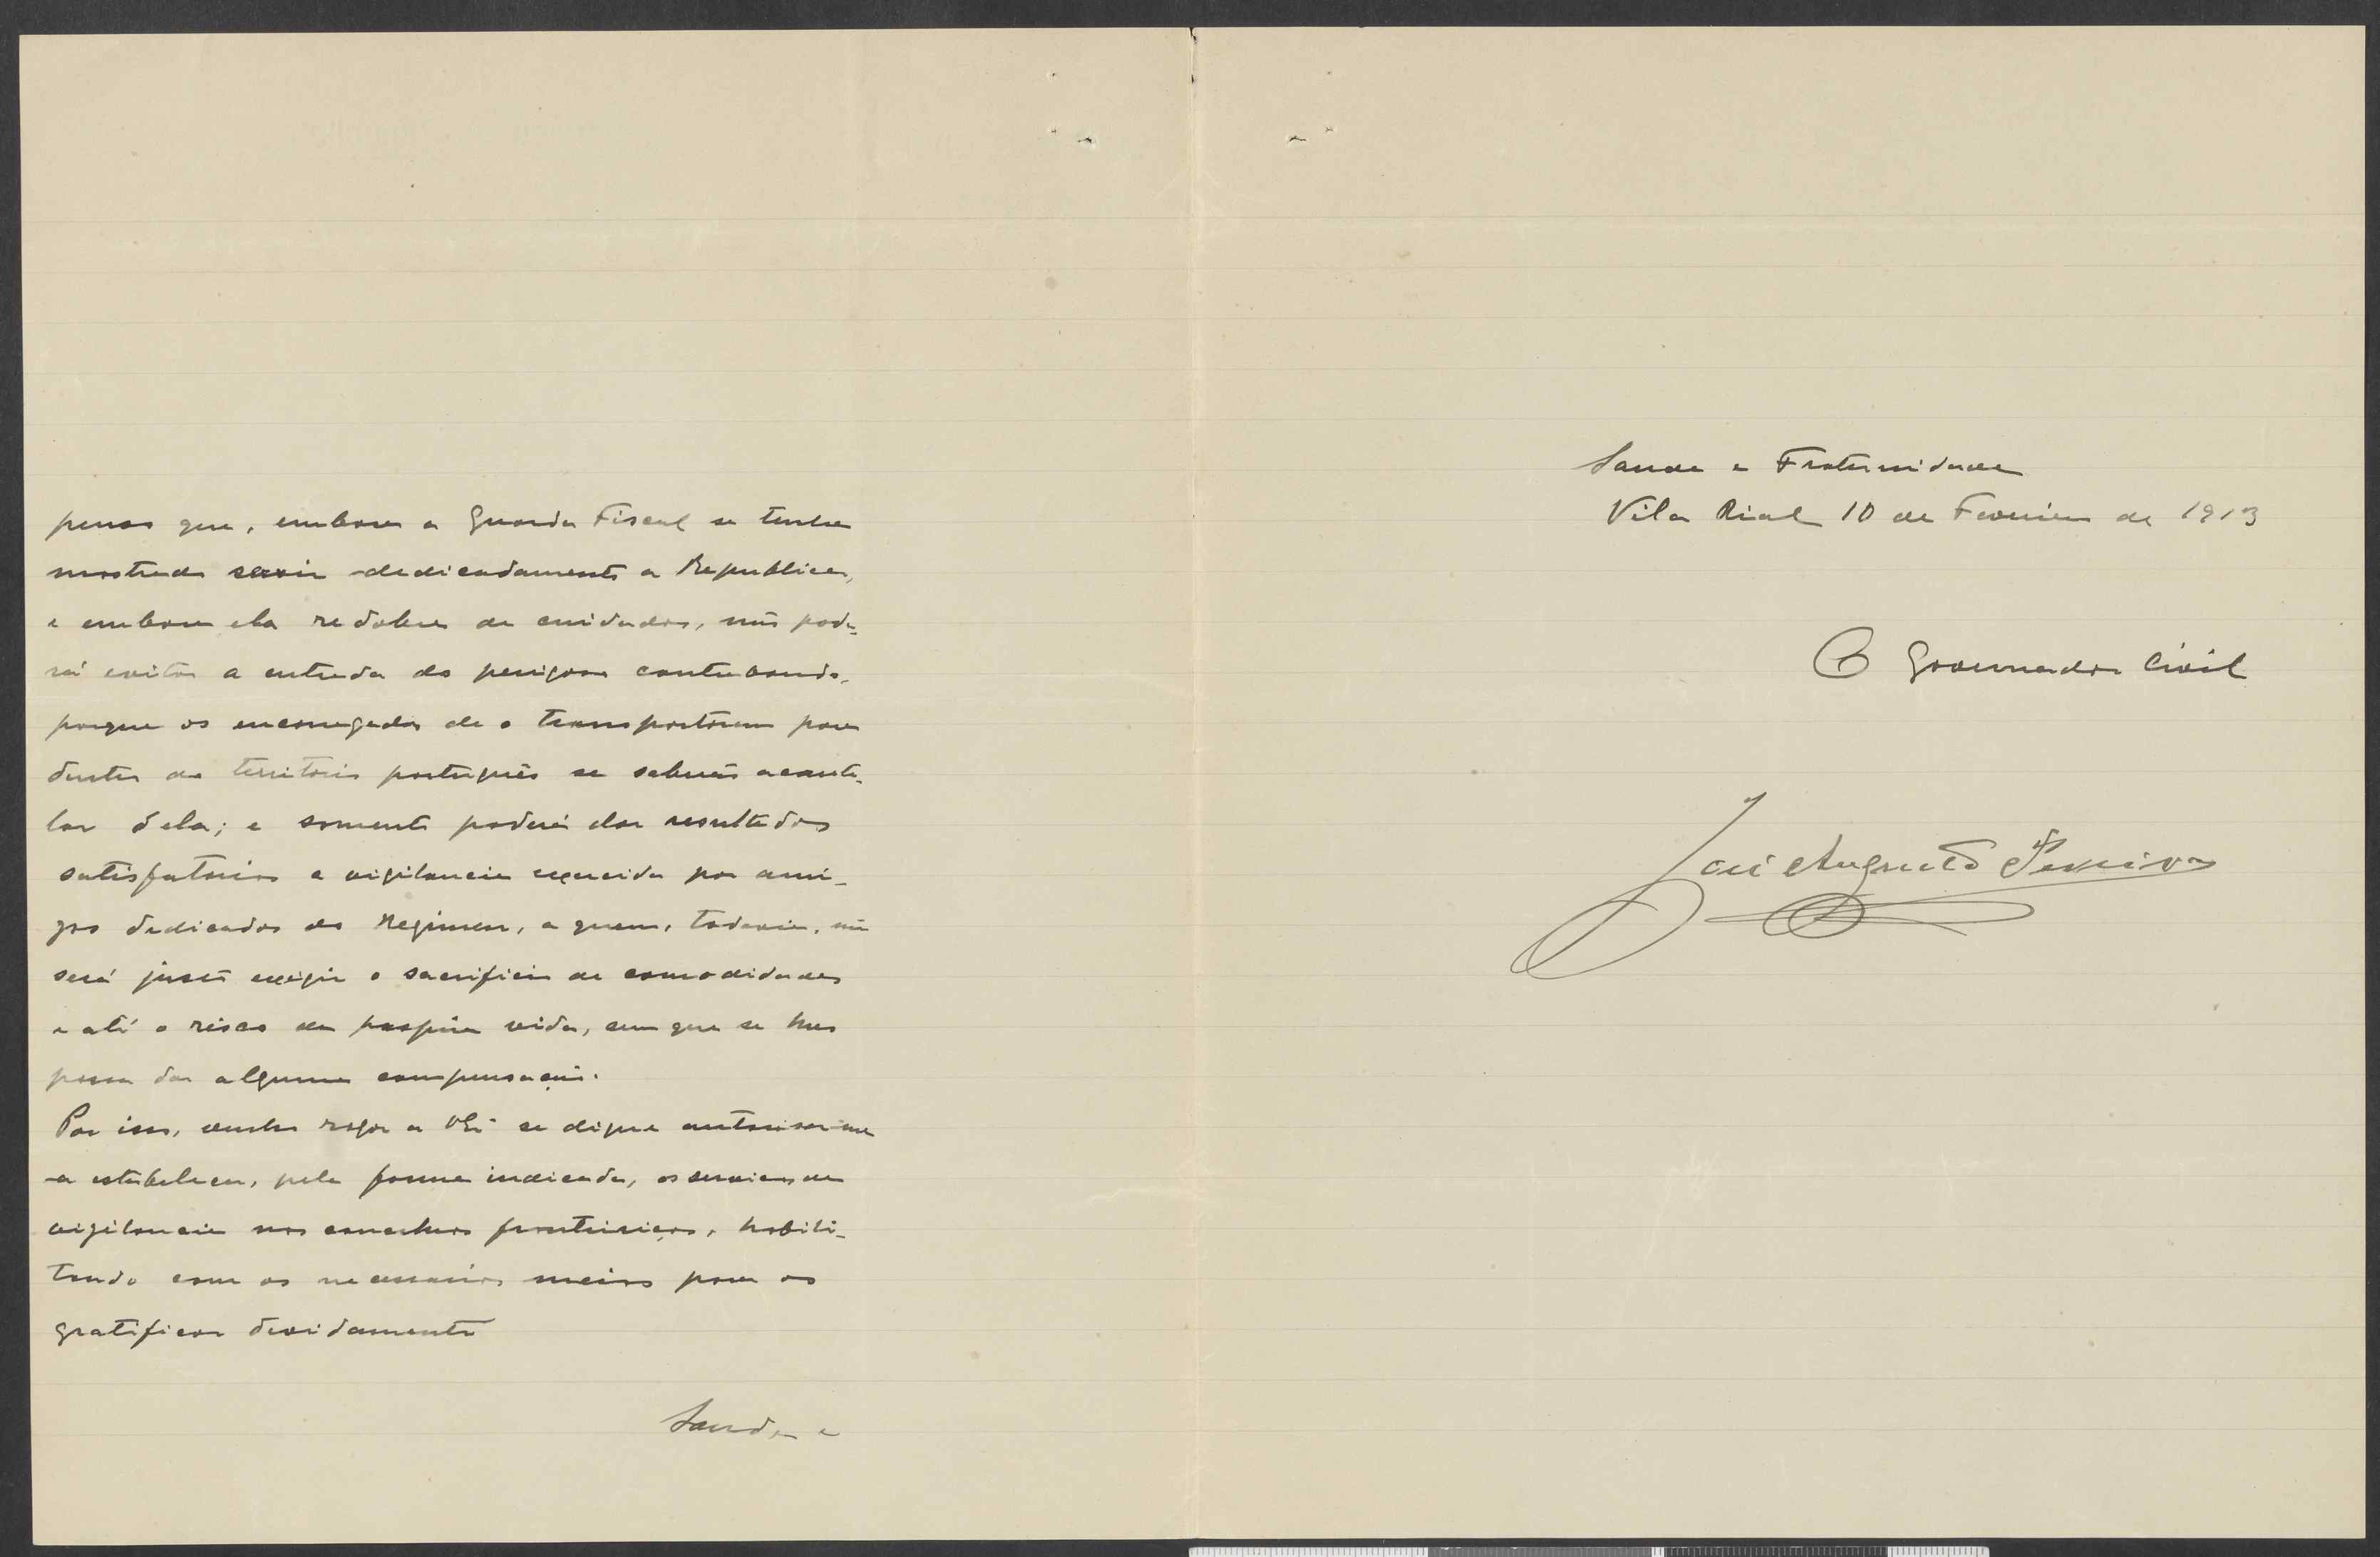 penso que, embora a Guarda Fiscal se tenha
mostrado servir dedicadamente a Republica,
e embora ela redobre de cuidados, não pode-
rá evitar a entrada do perigoso contrabando,
porque os encarregados de o transportarem para
dentro do territorio português se saberão acaute-
lar dela; e somente poderá dar resultados
satisfatorios a vigilancia exercida por ami-
gos dedicados do Regimen, a quem, todavia, não
será justo exigir o sacrificio de comodidades
e até o risco da propria vida, sem que se lhes
possa dar alguma compensação.
Por isso, venho rogar a V. Ex.ª se digne autorisar-me
a estabelecer, pela forma indicada, os serviços de
vigilancia nos concelhos fronteiriços, habili-
tando com os necessarios meios para os
gratificar devidamente
Saude e
Saude e Fraternidade
Vila Rial 10 de Fevereiro de 1913
O Governador Civil
José Augusto